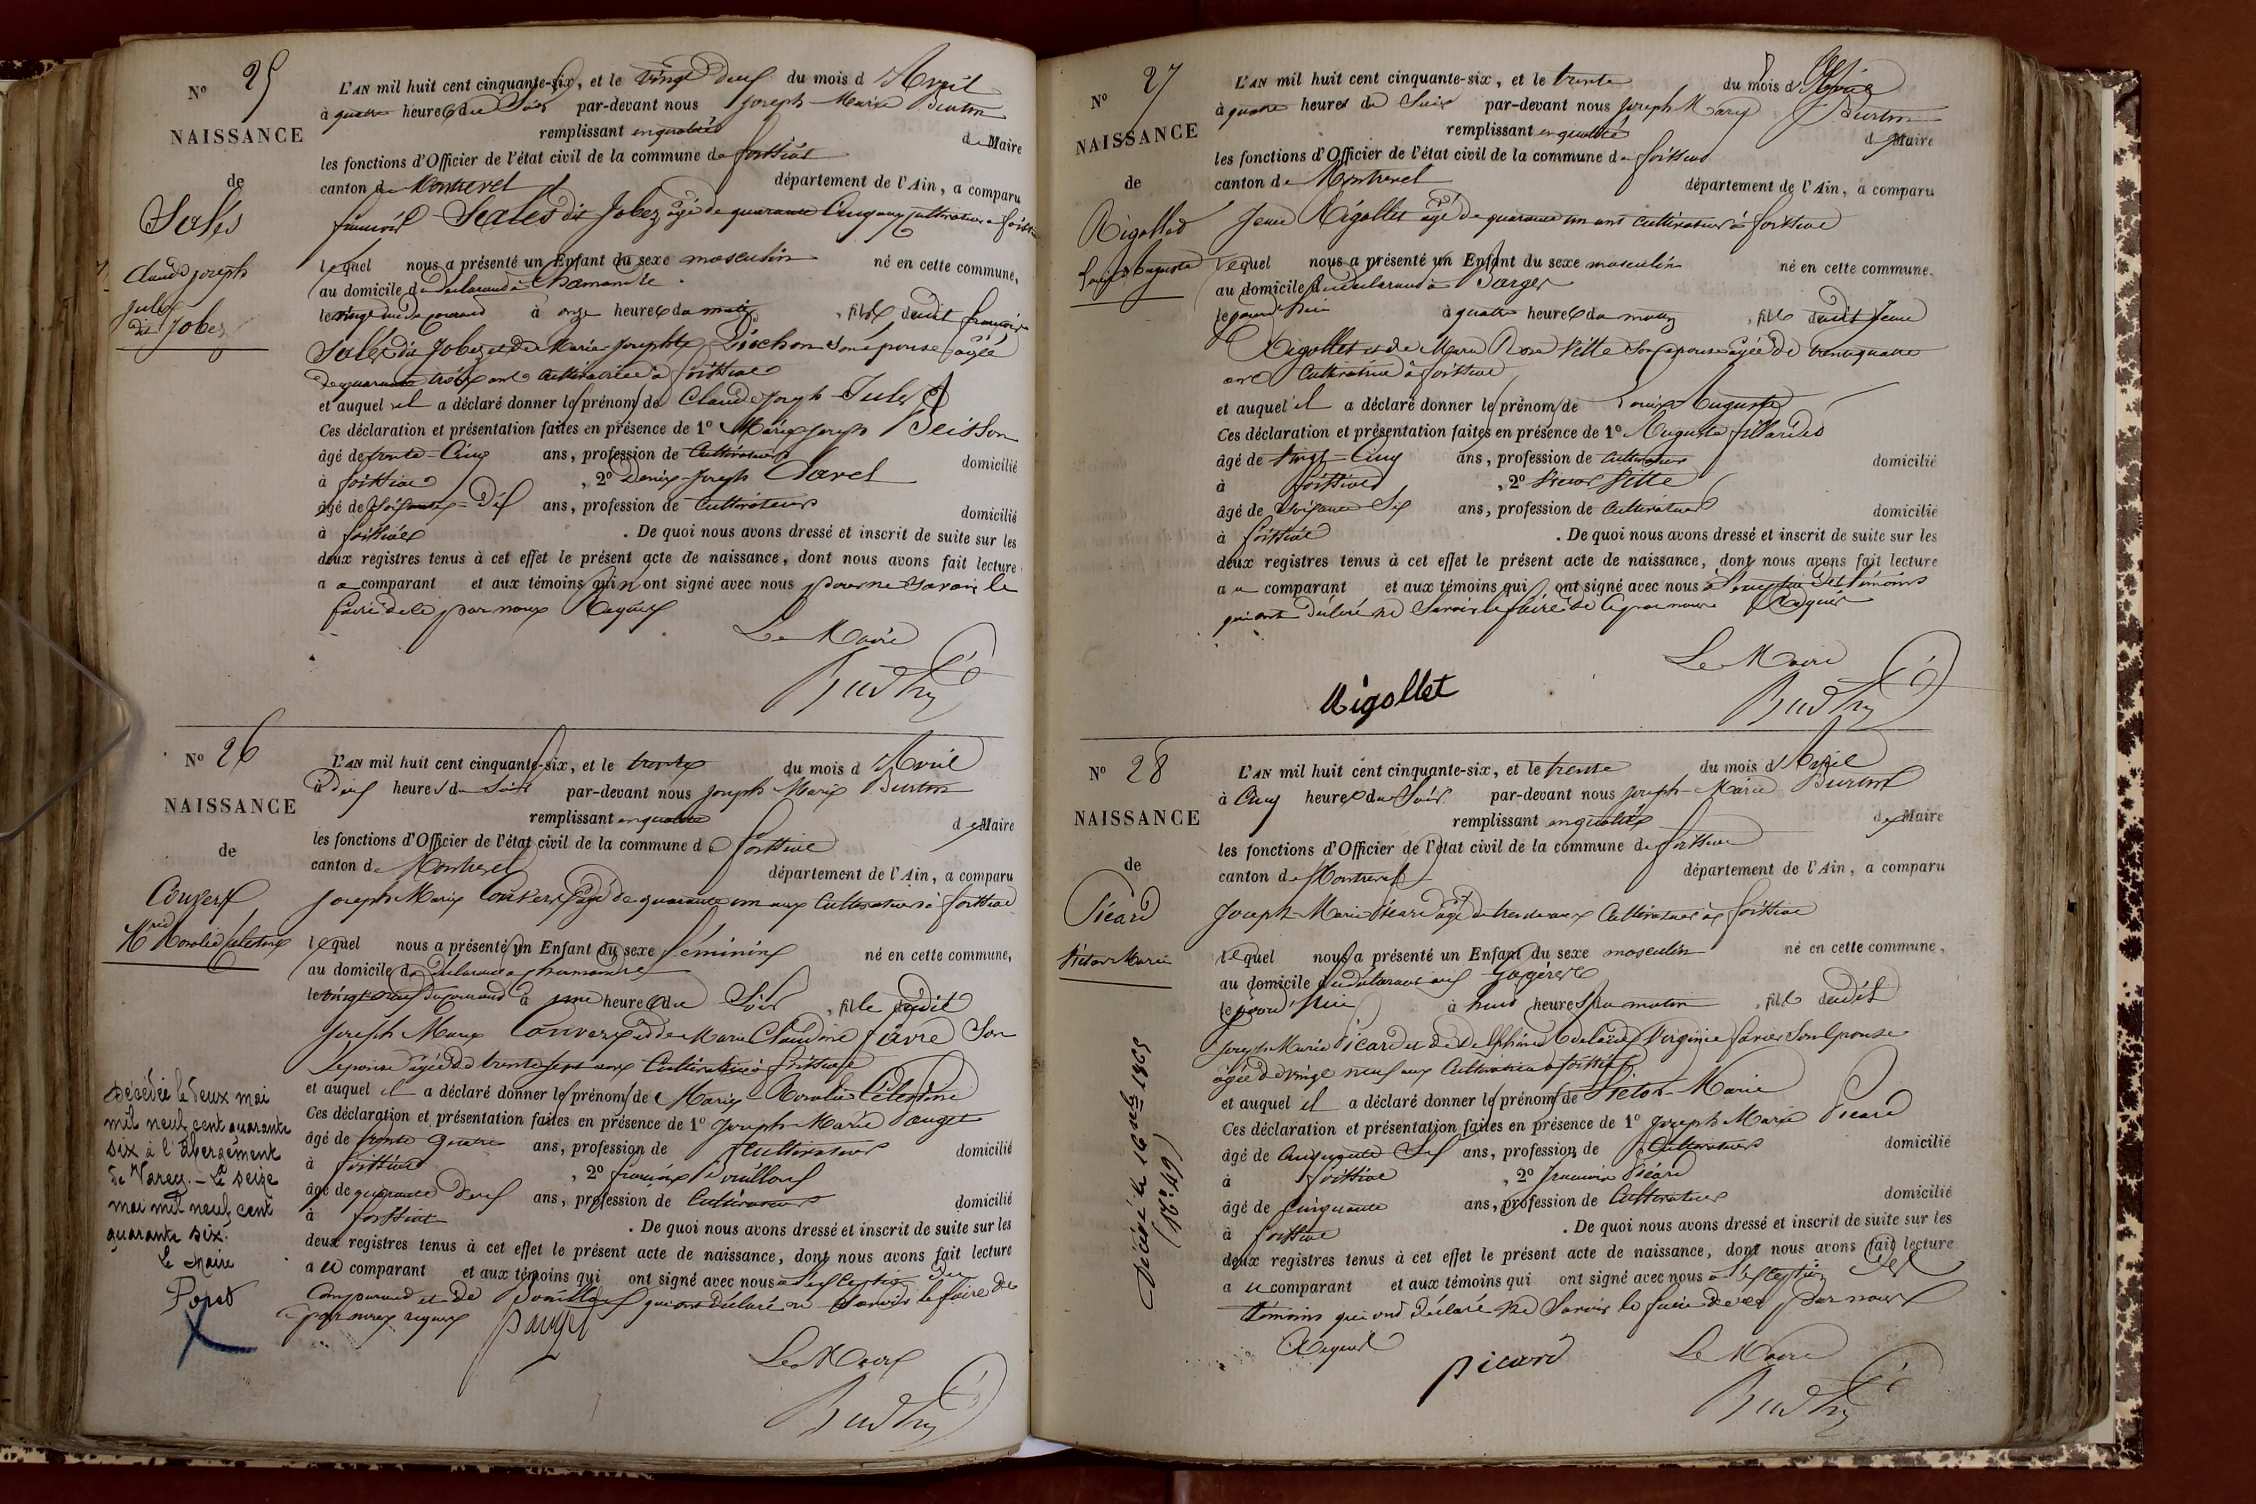 N° 25
NAISSANCE
de
Salés
Claude Joseph
Jules
dit Jobez
L'AN mil huit cent cinquante-six, et le vingt deux du mois d'Avril
à quatre heures du Soir par-devant nous Joseph-Marie
remplissant en qualité de Maire
les fonctions d'Officier de l'état civil de la commune de foissiat
canton de Montrevel département de l'Ain, a comparu
françois Salés dit Jobez âgé de quarante Cinq ans Cultivateur à foissiat
lequel nous a présenté un Enfant du sexe masculin né en cette commune,
au domicile du déclarant à Chamandre
le vingt un du courant à onze heures du matin, fils dudit françois
Salés dit Jobez et de Marie Josephte son épouse âgée
de quarante trois ans Cultivatrice à foissiat
et auquel il a déclaré donner les prénoms de Claude Joseph Jules
Ces déclaration et présentation faites en présence de 1° Marie Joseph
âgé de trente-Cinq ans, profession de Cultivateur domicilié
à foissiat, 2° Denis-Joseph
âgé de Soixante-Dix ans, profession de Cultivateur domicilié
à foissiat. De quoi nous avons dressé et inscrit de suite sur les
deux registres tenus à cet effet le présent acte de naissance, dont nous avons fait lecture
au comparant et aux témoins qui n'ont signé avec nous pour ne Savoir le
faire de ce par nous Requis
Le Maire
N° 26
NAISSANCE
de
Convert
Rosalie Célestine
L'AN mil huit cent cinquante-six, et le trente du mois d'Avril
à Deux heures du Soir par-devant nous Joseph Marie
remplissant en qualité de Maire
les fonctions d'Officier de l'état civil de la commune de foissiat
canton de Montrevel département de l'Ain, a comparu
Joseph Marie Convert âgé de quarante un ans Cultivateur à foissiat
lequel nous a présenté un Enfant du sexe féminin né en cette commune,
au domicile du déclarant à Chamandre
le vingt neuf du courant à une heure du Soir, fille dudit
Joseph Marie Convert et de Marie Claudine fèvre Son
épouse âgée de trente sept ans Cultivatrice à foissiat
et auquel il a déclaré donner les prénoms de Marie Rosalie Célestine
Ces déclaration et présentation faites en présence de 1° Joseph Marie Pauget
âgé de trente quatre ans, profession de Cultivateur domicilié
à foissiat, 2° françois Pouilloux
âgé de quarante Deux ans, profession de Cultivateur domicilié
à foissiat. De quoi nous avons dressé et inscrit de suite sur les
deux registres tenus à cet effet le présent acte de naissance, dont nous avons fait lecture
au comparant et aux témoins qui ont signé avec nous à l'exception du
Comparant et de Pouilloux qui ont déclaré ne Savoir le faire de
ce par nous requis
Pauget
Le Maire
Décédée le deux mai
mil neuf cent quarante
six à l'Abergement
de Varey. - Le seize
mai mil neuf cent
quarante six.
Le Maire
N° 27
NAISSANCE
de
Rigollet
Louis Auguste
L'AN mil huit cent cinquante-six, et le trente du mois d'Avril
à quatre heures du Soir par-devant nous Joseph Marie
remplissant en qualité de Maire
les fonctions d'Officier de l'état civil de la commune de foissiat
canton de Montrevel département de l'Ain, a comparu
Jean Rigollet âgé de quarante un ans Cultivateur à foissiat
lequel nous a présenté un Enfant du sexe masculin né en cette commune.
au domicile du déclarant à
le jourd'hui à quatre heures du matin, fils dudit Jean
Rigollet et de Marie Rose Pitte Son épouse âgée de trente quatre
ans Cultivatrice à foissiat
et auquel il a déclaré donner les prénoms de Louis Auguste
Ces déclaration et présentation faites en présence de 1° Auguste
âgé de vingt-Cinq ans, profession de Cultivateur domicilié
à foissiat, 2° Pitte
âgé de Soixante Six ans, profession de Cultivateur domicilié
à foissiat. De quoi nous avons dressé et inscrit de suite sur les
deux registres tenus à cet effet le présent acte de naissance, dont nous avons fait lecture
au comparant et aux témoins qui ont signé avec nous à l'exception des témoins
qui ont déclaré ne Savoir le faire de ce par nous Requis
Le Maire
Rigollet
N° 28
NAISSANCE
de
Picard
Victor Marie
L'AN mil huit cent cinquante-six, et le trente du mois d'Avril
à Cinq heures du Soir par-devant nous Joseph-Marie
remplissant en qualité de Maire
les fonctions d'Officier de l'état civil de la commune de foissiat
canton de Montrevel département de l'Ain, a comparu
Joseph-Marie Picard âgé de trente ans Cultivateur à foissiat
lequel nous a présenté un Enfant du sexe masculin né en cette commune.
au domicile du déclarant aux
le jourd'hui à huit heures du matin, fils dudit
Joseph Marie Picard et de Delphine Adelaïde Virginie Son Epouse
âgée de vingt neuf ans Cultivatrice à foissiat
et auquel il a déclaré donner les prénoms de Victor-Marie
Ces déclaration et présentation faites en présence de 1° Joseph Marie Picard
âgé de Cinquante Six ans, profession de Cultivateur domicilié
à foissiat, 2° françois Picard
âgé de Cinquante ans, profession de Cultivateur domicilié
à foissiat. De quoi nous avons dressé et inscrit de suite sur les
deux registres tenus à cet effet le présent acte de naissance, dont nous avons fait lecture
au comparant et aux témoins qui ont signé avec nous à l'exception des
témoins qui ont déclaré ne Savoir le faire de ce par nous
Requis
picard
Le Maire
Décédé le 16
(N° 49)